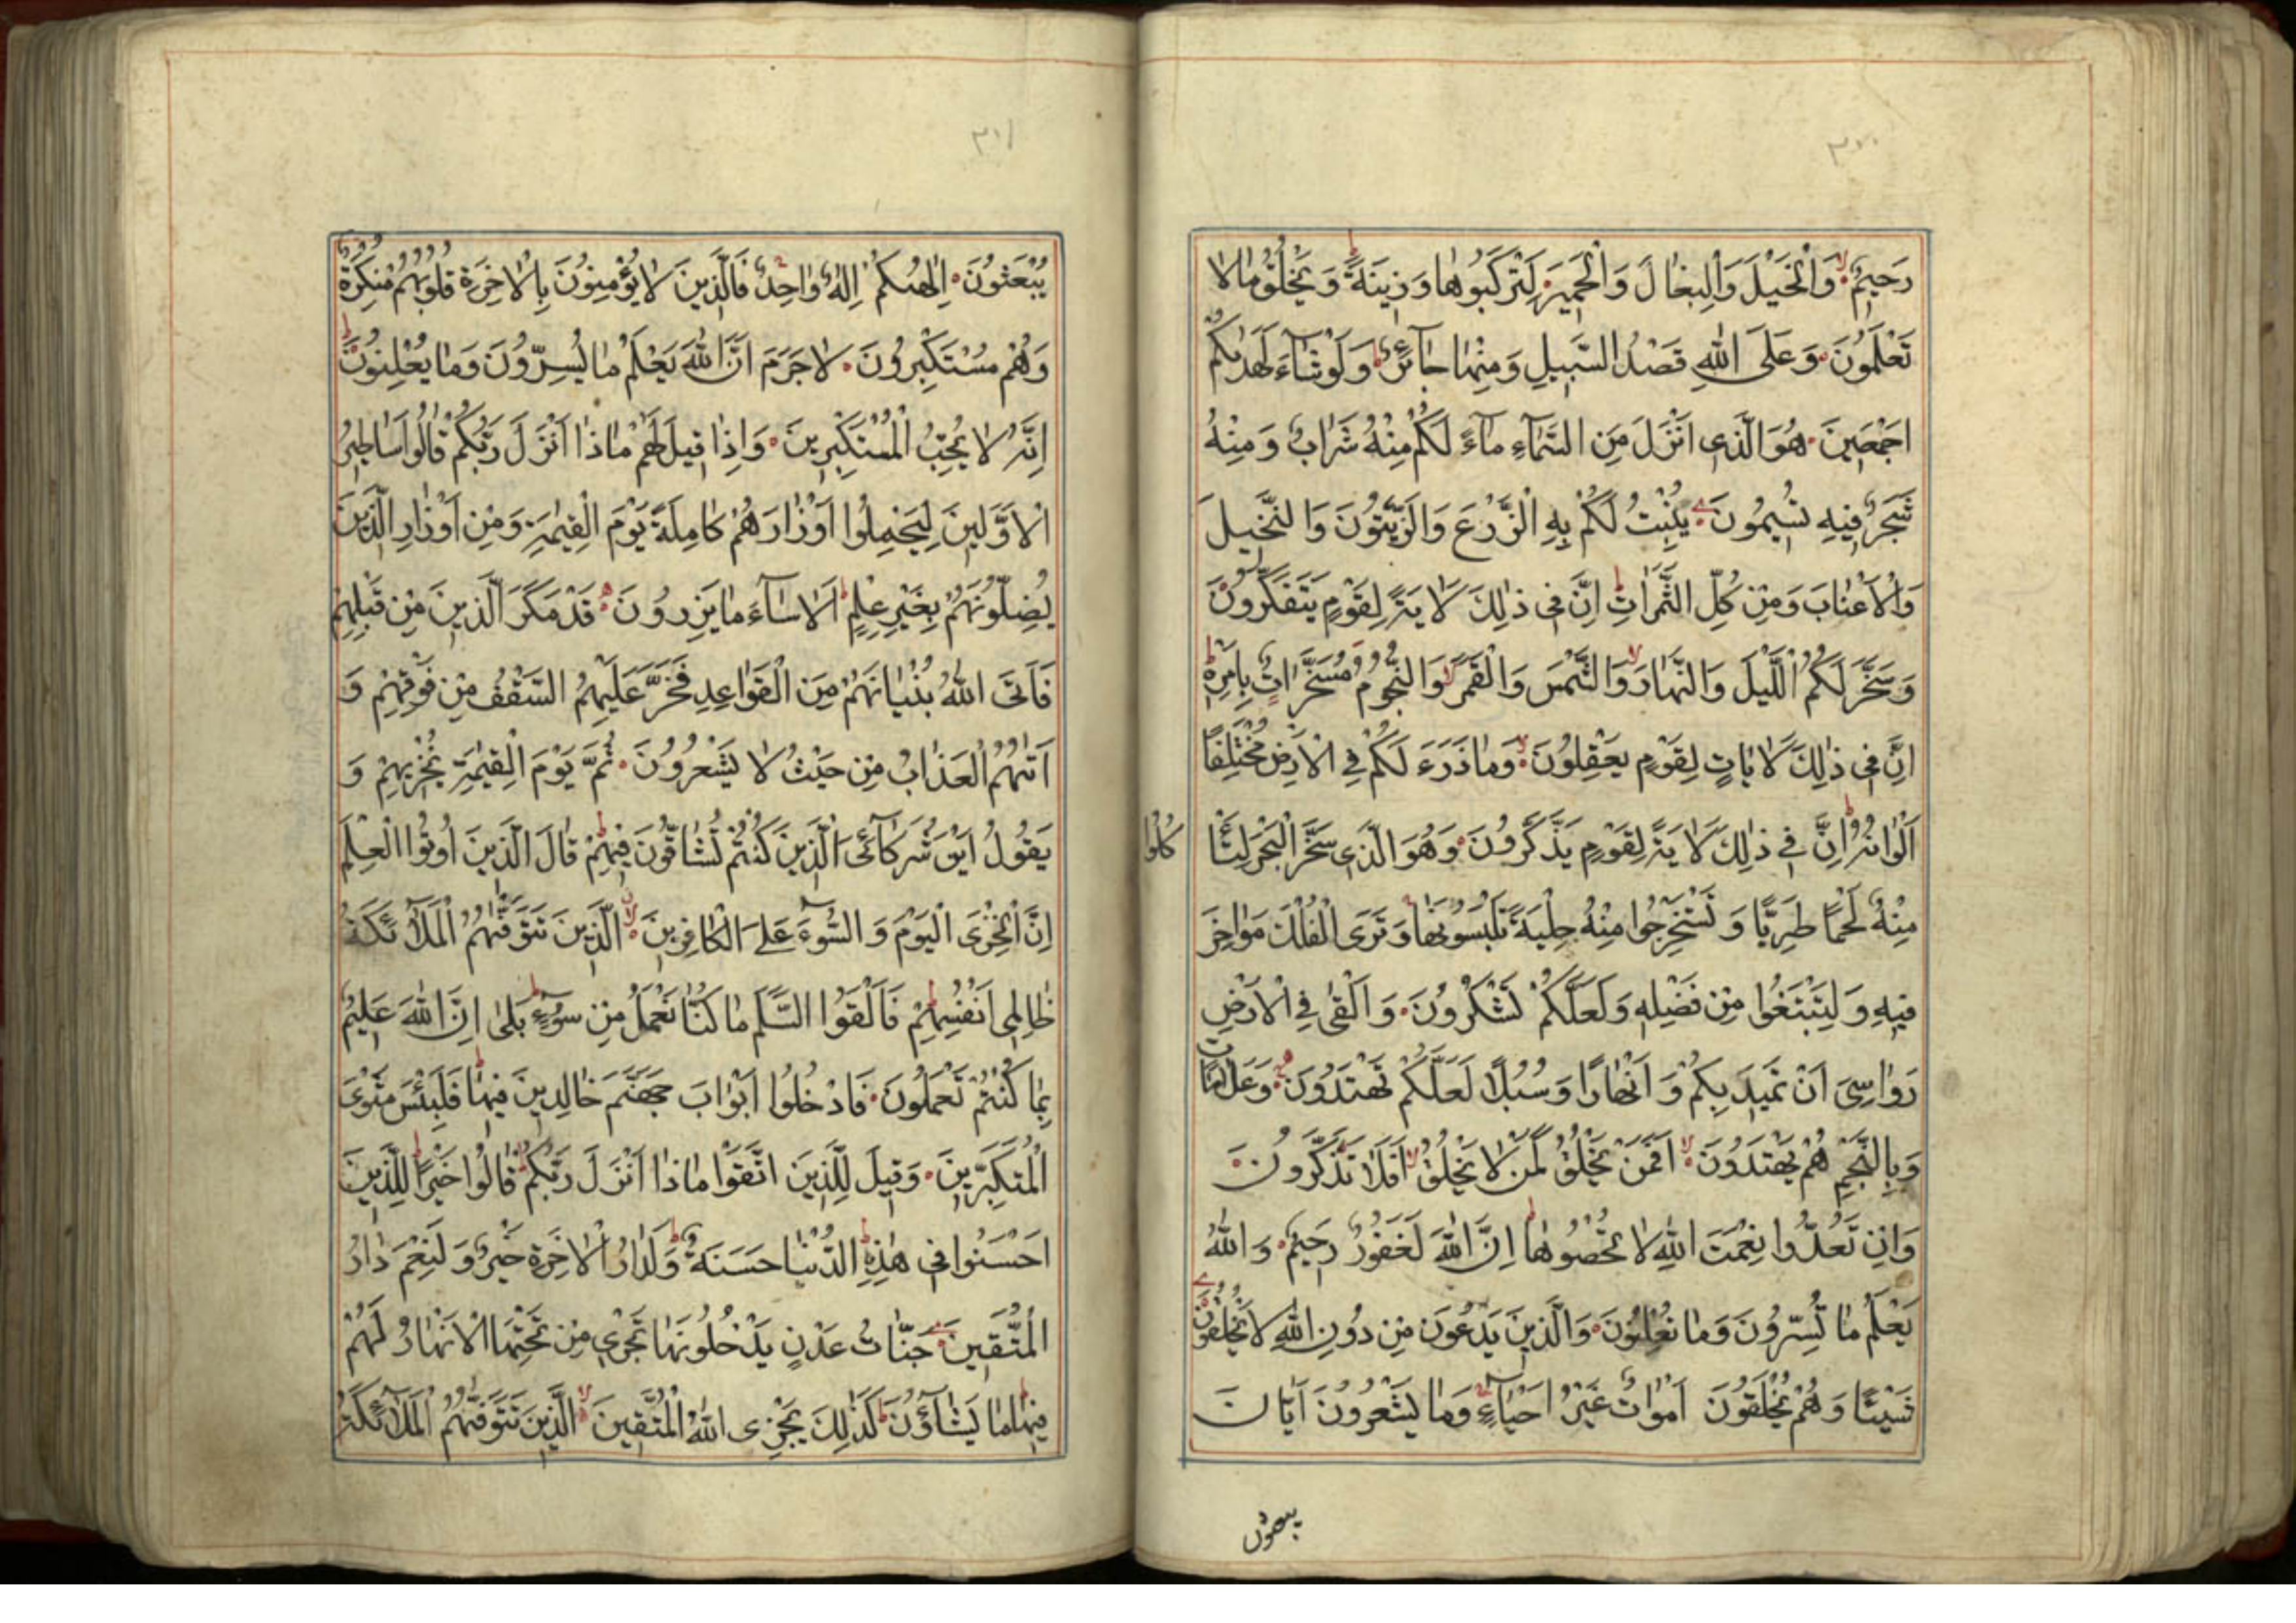 ٣٠٠
رَحِيمٌ وَالْخَيْلَ وَالْبِغَالَ وَالْحَمِيرَ لِتَرْكَبُوهَا وَزِينَةً وَيَخْلُقُ مَا لَا
تَعْلَمُونَ وَعَلَى اللهِ قَصْدُ السَّبِيلِ وَمِنْهَا جَآئِرٌ وَلَوْ شَآءَ لَهَدٰىكُمْ
اَجْمَعِينَ هُوَ الَّذِى اَنْزَلَ مِنَ السَّمَآءِ مَآءً لَكُمْ مِنْهُ شَرَابٌ وَمِنْهُ
شَجَرٌ فِيهِ تُسِيمُونَ يُنْبِتُ لَكُمْ بِهِ الزَّرْعَ وَالزَّيْتُونَ وَالنَّخِيلَ
وَالْاَعْنَابَ وَمِنْ كُلِّ الثَّمَرَاتِ اِنَّ فِى ذٰلِكَ لَاٰيَةً لِقَوْمٍ يَتَفَكَّرُونَ
وَسَخَّرَ لَكُمُ اللَّيْلَ وَالنَّهَارَ وَالشَّمْسَ وَالْقَمَرَ وَالنُّجُومُ مُسَخَّرَاتٌ بِاَمْرِهِ
اِنَّ فِى ذٰلِكَ لَاٰيَاتٍ لِقَوْمٍ يَعْقِلُونَ وَمَا ذَرَءَ لَكُمْ فِى الْاَرْضِ مُخْتَلِفًا
اَلْوَانُهُ اِنَّ فِى ذٰلِكَ لَاٰيَةً لِقَوْمٍ يَذَّكَّرُونَ وَهُوَ الَّذِى سَخَّرَ الْبَحْرَ لِتَأْ
كُلُوا
مِنْهُ لَحْمًا طَرِيًّا وَتَسْتَخْرِجُوا مِنْهُ حِلْيَةً تَلْبَسُونَهَا وَتَرَى الْفُلْكَ مَوَاخِرَ
فِيهِ وَلِتَبْتَغُوا مِنْ فَضْلِهِ وَلَعَلَّكُمْ تَشْكُرُونَ وَاَلْقٰى فِى الْاَرْضِ
رَوَاسِىَ اَنْ تَمِيدَ بِكُمْ وَاَنْهَارًا وَسُبُلًا لَعَلَّكُمْ تَهْتَدُونَ وَعَلَامَاتٍ
وَبِالنَّجْمِ هُمْ يَهْتَدُونَ اَفَمَنْ يَخْلُقُ كَمَنْ لَا يَخْلُقُ اَفَلَا تَذَكَّرُونَ
وَاِنْ تَعُدُّوا نِعْمَتَ اللهِ لَا تُحْصُوهَا اِنَّ اللهَ لَغَفُورٌ رَحِيمٌ وَاللهُ
يَعْلَمُ مَا تُسِرُّونَ وَمَا تُعْلِنُونَ وَالَّذِينَ يَدْعُونَ مِنْ دُونِ اللهِ لَا يَخْلُقُونَ
شَيْئًا وَهُمْ يُخْلَقُونَ اَمْوَاتٌ غَيْرُ اَحْيَآءٍ وَمَا يَشْعُرُونَ اَيَّانَ
يبعثون
٣٠١
يُبْعَثُونَ اِلٰهُكُمْ اِلٰهٌ وَاحِدٌ فَالَّذِينَ لَا يُؤْمِنُونَ بِالْاٰخِرَةِ قُلُوبُهُمْ مُنْكِرَةٌ
وَهُمْ مُسْتَكْبِرُونَ لَا جَرَمَ اَنَّ اللهَ يَعْلَمُ مَا يُسِرُّونَ وَمَا يُعْلِنُونَ
اِنَّهُ لَا يُحِبُّ الْمُسْتَكْبِرِينَ وَاِذَا قِيلَ لَهُمْ مَاذَا اَنْزَلَ رَبُّكُمْ قَالُوا اَسَاطِيرُ
الْاَوَّلِينَ لِيَحْمِلُوا اَوْزَارَهُمْ كَامِلَةً يَوْمَ الْقِيٰمَةِ وَمِنْ اَوْزَارِ الَّذِينَ
يُضِلُّونَهُمْ بِغَيْرِ عِلْمٍ اَلَا سَآءَ مَا يَزِرُونَ قَدْ مَكَرَ الَّذِينَ مِنْ قَبْلِهِمْ
فَاَتَى اللهُ بُنْيَانَهُمْ مِنَ الْقَوَاعِدِ فَخَرَّ عَلَيْهِمُ السَّقْفُ مِنْ فَوْقِهِمْ وَ
اَتٰىهُمُ الْعَذَابُ مِنْ حَيْثُ لَا يَشْعُرُونَ ثُمَّ يَوْمَ الْقِيٰمَةِ يُخْزِيهِمْ وَ
يَقُولُ اَيْنَ شُرَكَآئِىَ الَّذِينَ كُنْتُمْ تُشَاقُّونَ فِيهِمْ قَالَ الَّذِينَ اُوتُوا الْعِلْمَ
اِنَّ الْخِزْىَ الْيَوْمَ وَالسُّوٓءَ عَلَى الْكَافِرِينَ الَّذِينَ تَتَوَفّٰىهُمُ الْمَلٰٓئِكَةُ
ظَالِمِى اَنْفُسِهِمْ فَاَلْقَوُا السَّلَمَ مَا كُنَّا نَعْمَلُ مِنْ سُوٓءٍ بَلٰى اِنَّ اللهَ عَلِيمٌ
بِمَا كُنْتُمْ تَعْمَلُونَ فَادْخُلُوا اَبْوَابَ جَهَنَّمَ خَالِدِينَ فِيهَا فَلَبِئْسَ مَثْوَى
الْمُتَكَبِّرِينَ وَقِيلَ لِلَّذِينَ اتَّقَوْا مَاذَا اَنْزَلَ رَبُّكُمْ قَالُوا خَيْرًا لِلَّذِينَ
اَحْسَنُوا فِى هٰذِهِ الدُّنْيَا حَسَنَةٌ وَلَدَارُ الْاٰخِرَةِ خَيْرٌ وَلَنِعْمَ دَارُ
الْمُتَّقِينَ جَنَّاتُ عَدْنٍ يَدْخُلُونَهَا تَجْرِى مِنْ تَحْتِهَا الْاَنْهَارُ لَهُمْ
فِيهَا مَا يَشَآؤُنَ كَذٰلِكَ يَجْزِى اللهُ الْمُتَّقِينَ الَّذِينَ تَتَوَفّٰىهُمُ الْمَلٰٓئِكَةُ